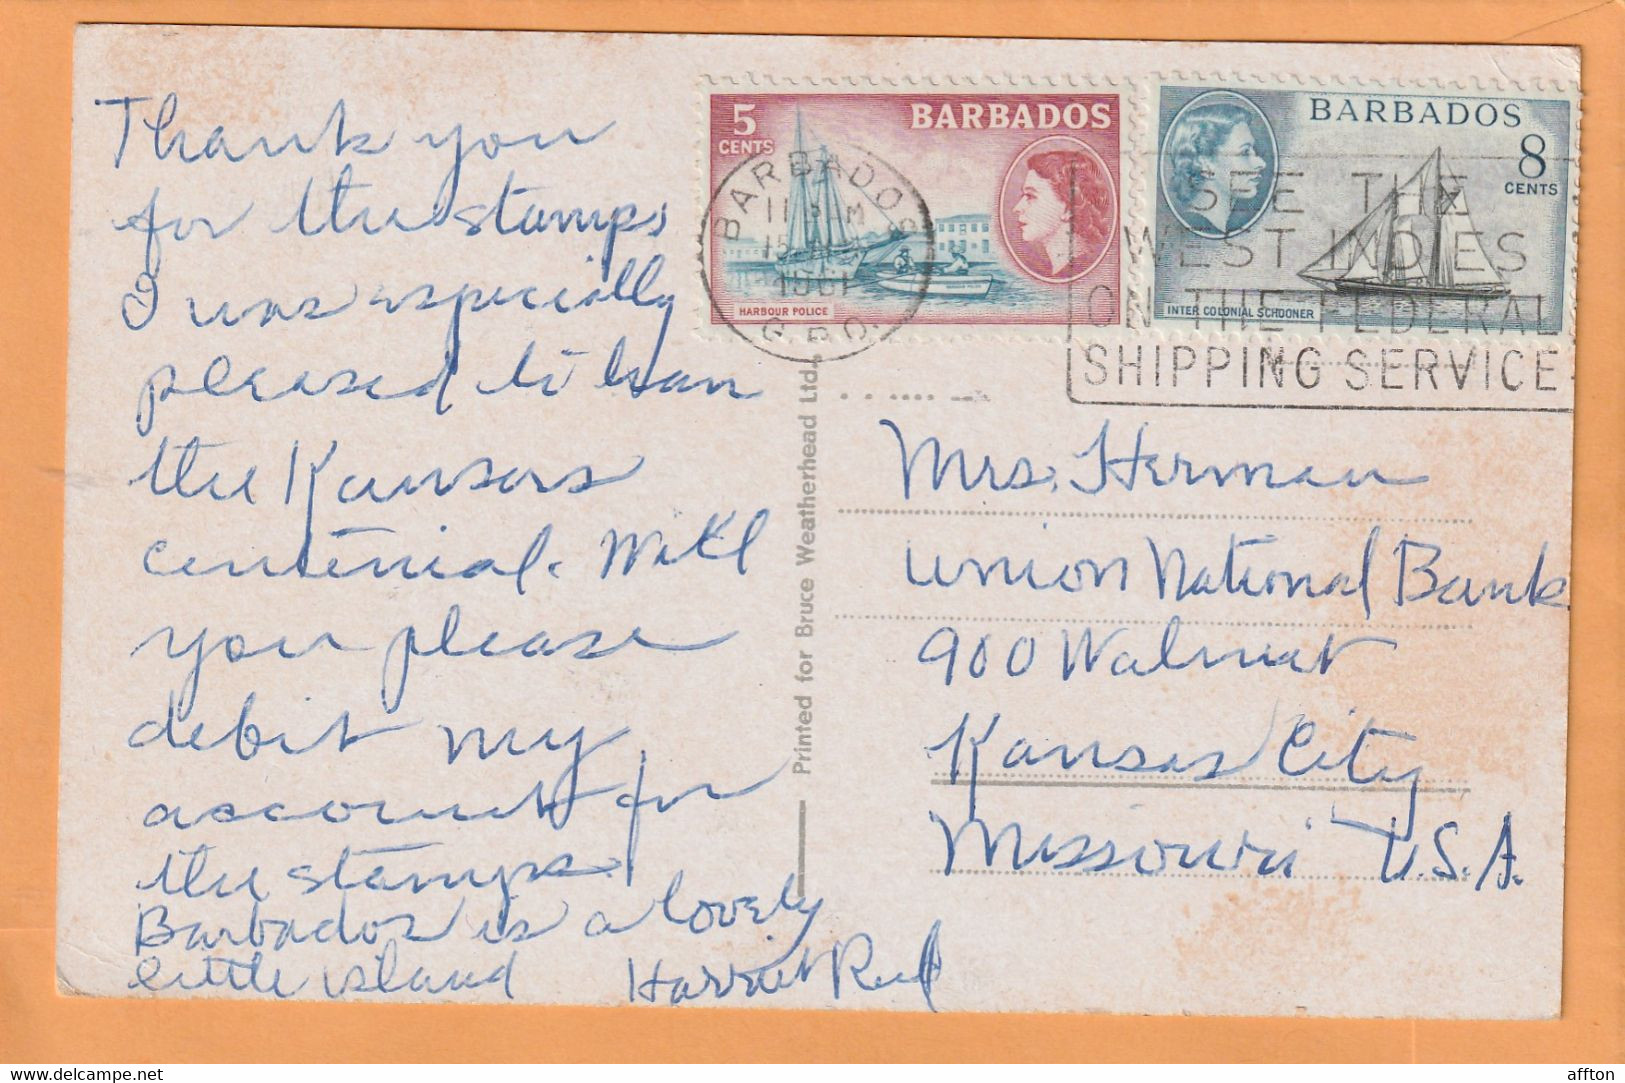 Thank you
for the stamps
I was especially
pleased to han
the Kansas
centenial. Will
you please
debit my
account for
the stamps.
Barbados is a lovely
little island Harriet
Printed for Bruce Weatherhead Ltd.,
5
CENTS
BARBADOS
HARBOUR POLICE
BARBADOS
8
CENTS
INTER COLONIAL SCHOONER
BARBADOS
11
15
1961
G.P.O.
SEE THE
WEST INDIES
ON THE FEDERAL
SHIPPING SERVICE
Mrs. Herman
Union National Bank
900 Walnut
Kansas City
Missouri U.S.A.
www.delcampe.net
affton